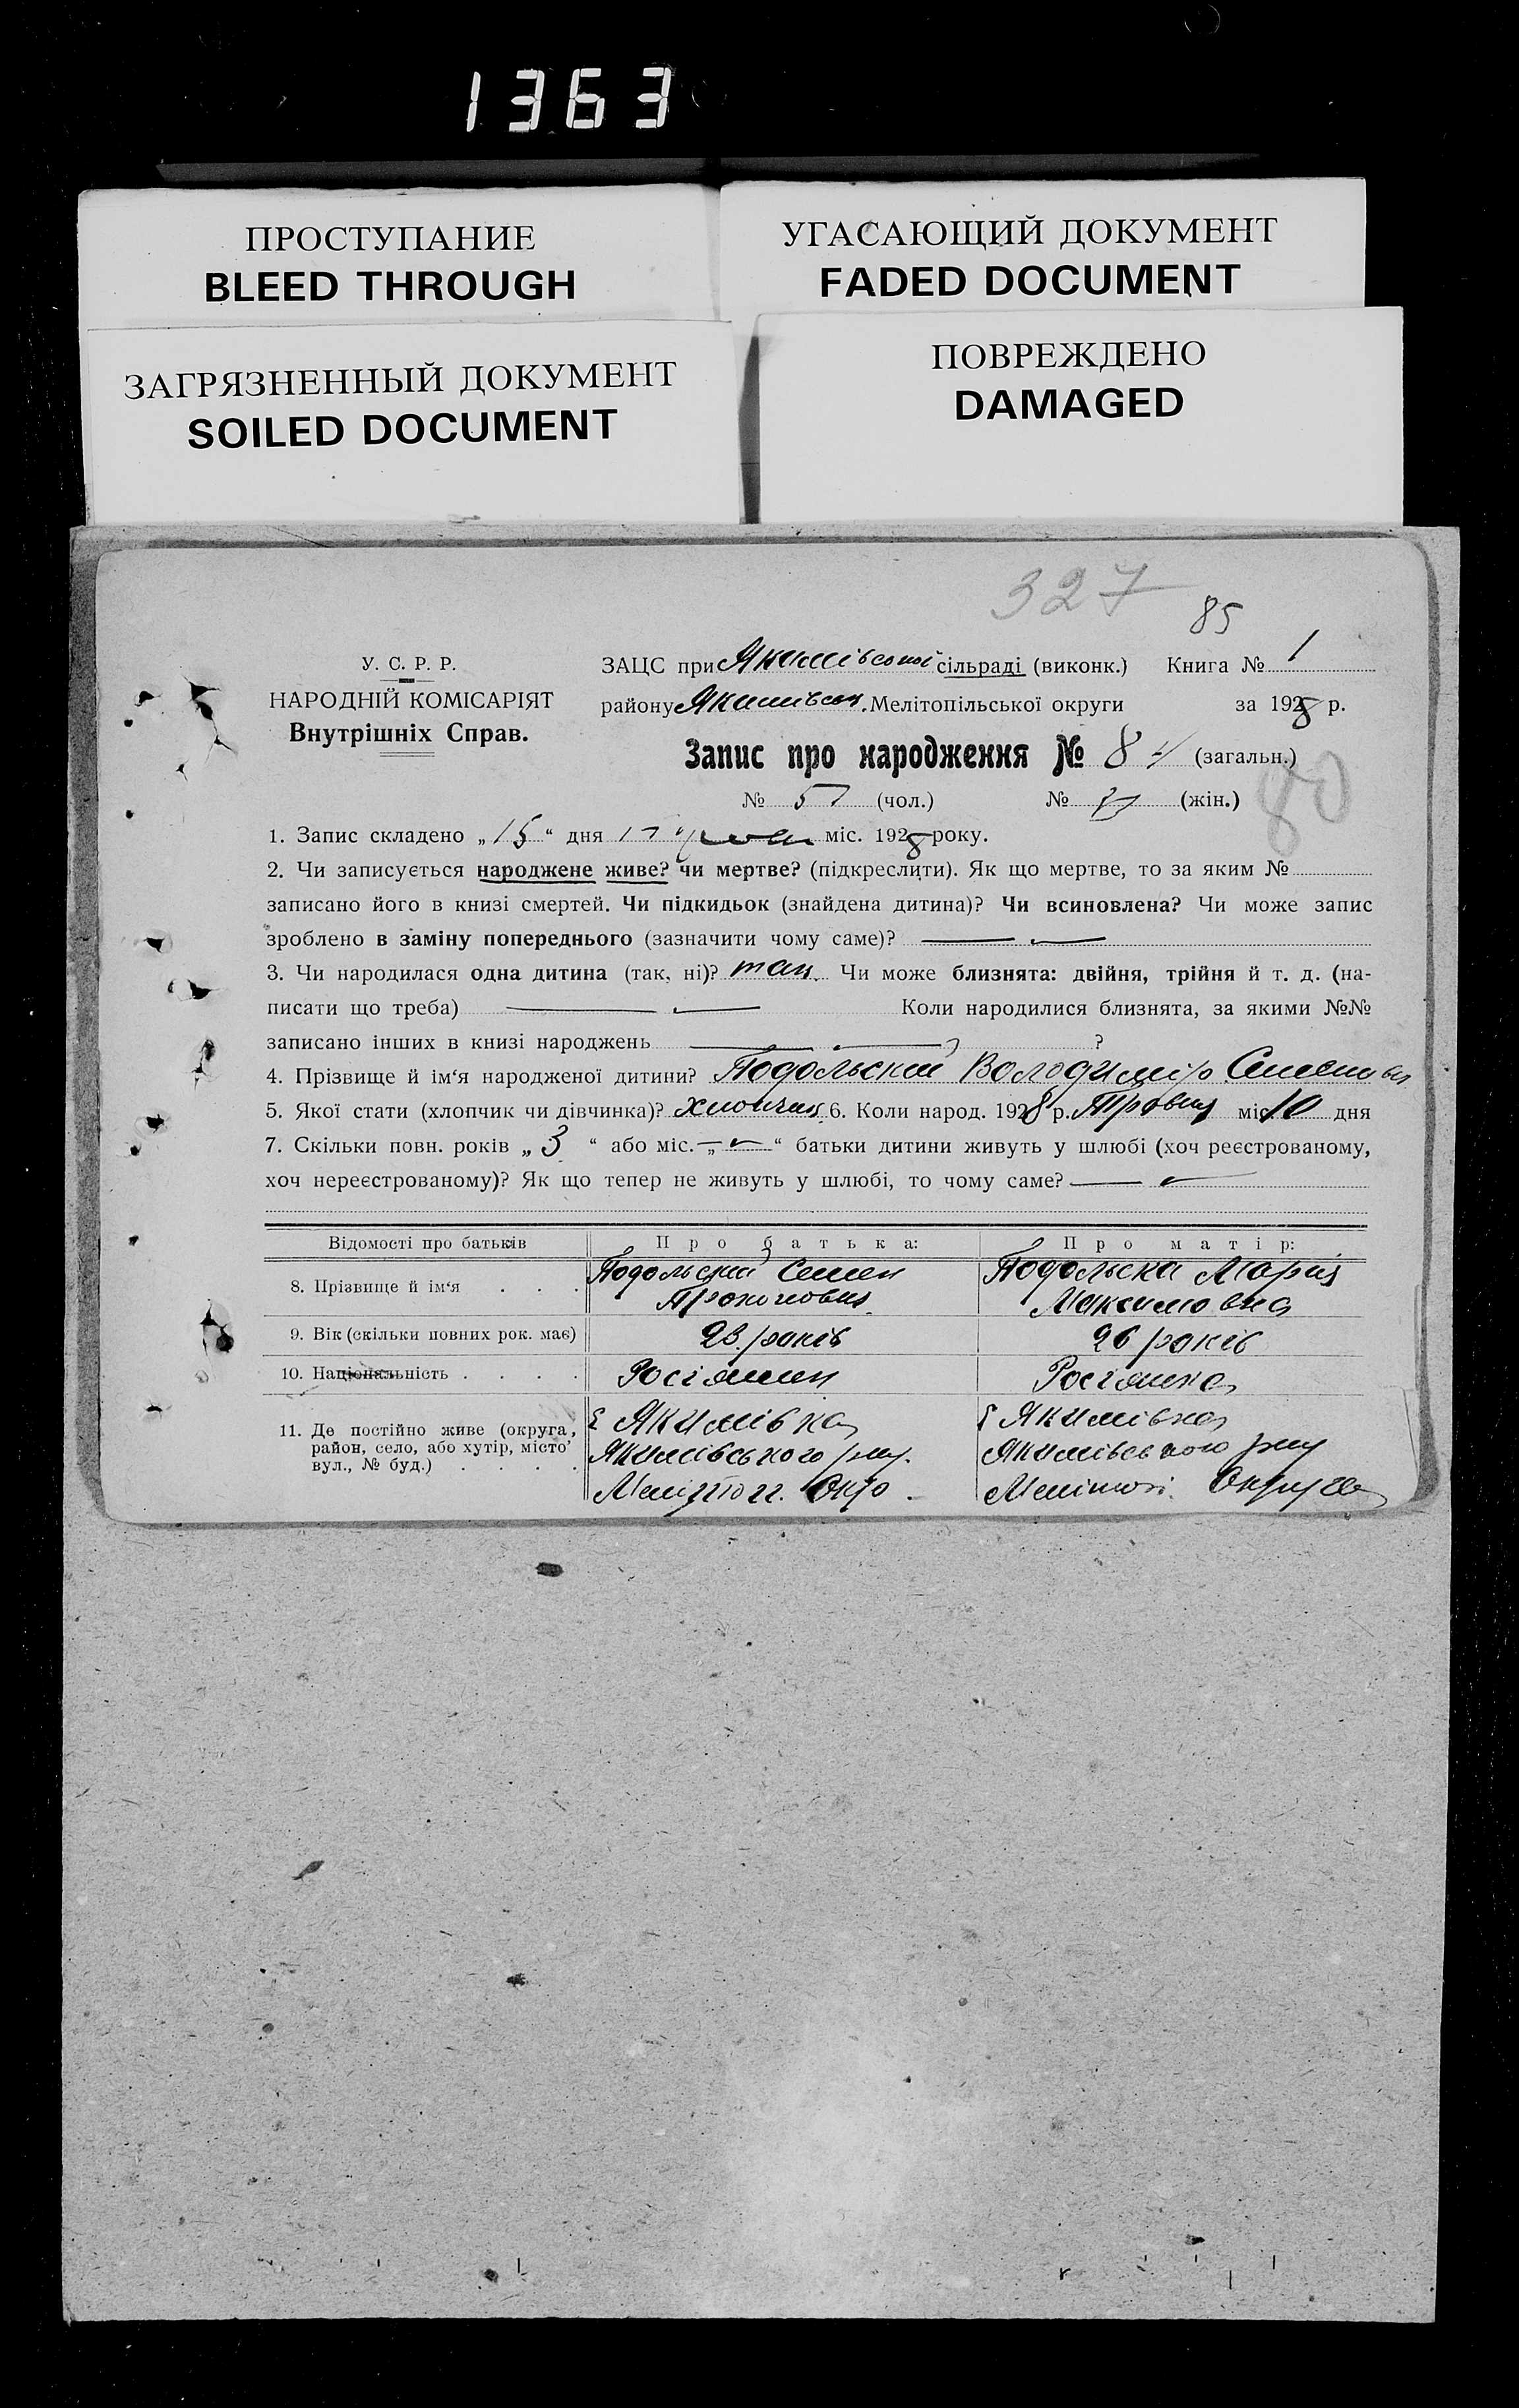 1363
ПРОСТУПАНИЕ
BLEED THROUGH
УГАСАЮЩИЙ ДОКУМЕНТ
FADED DOCUMENT
ЗАГРЯЗНЕННЫЙ ДОКУМЕНТ
SOILED DOCUMENT
ПОВРЕЖДЕНО
DAMAGED
327
85
У. С. Р. Р.
НАРОДНІЙ КОМІСАРІЯТ
Внутрішніх Справ.
ЗАЦС при Якимівської сільраді (виконк.) Книга № 1
району Якимівськ. Мелітопільської округи за 1928 р.
Запис про народження № 84 (загальн.)
80
№ 57 (чол.) № (жін.)
1. Запис складено „15“ дня міс. 1928 року.
2. Чи записується народжене живе? чи мертве? (підкреслити). Як що мертве, то за яким №
записано його в книзі смертей. Чи підкидьок (знайдена дитина)? Чи всиновлена? Чи може запис
зроблено в заміну попереднього (зазначити чому саме)?
3. Чи народилася одна дитина (так, ні)? так. Чи може близнята: двійня, трійня й т. д. (на-
писати що треба) Коли народилися близнята, за якими №№
записано інших в книзі народжень ?
4. Прізвище й ім‘я народженої дитини? Подольский Володимір
5. Якої стати (хлопчик чи дівчинка)? хлопчик 6. Коли народ. 1928 р. Травня міс 10 дня
7. Скільки повн. років „3“ або міс. „ “ батьки дитини живуть у шлюбі (хоч реєстрованому,
хоч нереєстрованому)? Як що тепер не живуть у шлюбі, то чому саме?
Відомості про батьків
Про батька:
Про матір:
8. Прізвище й ім‘я . . .
Подольский Семен
Прокопович
Подольска Мария
Максимовна
9. Вік (скільки повних рок. має)
23 років
26 років
10. Національність . . . .
Росіянин
Росіянка
11. Де постійно живе (округа, район, село, або хутір, місто’ вул., № буд.) . . . .
с Якимівка
Якимівського р-ну.
Меліто п. Окр.
с Якимівка
Якимівського р-ну
Мелітоп. Округа